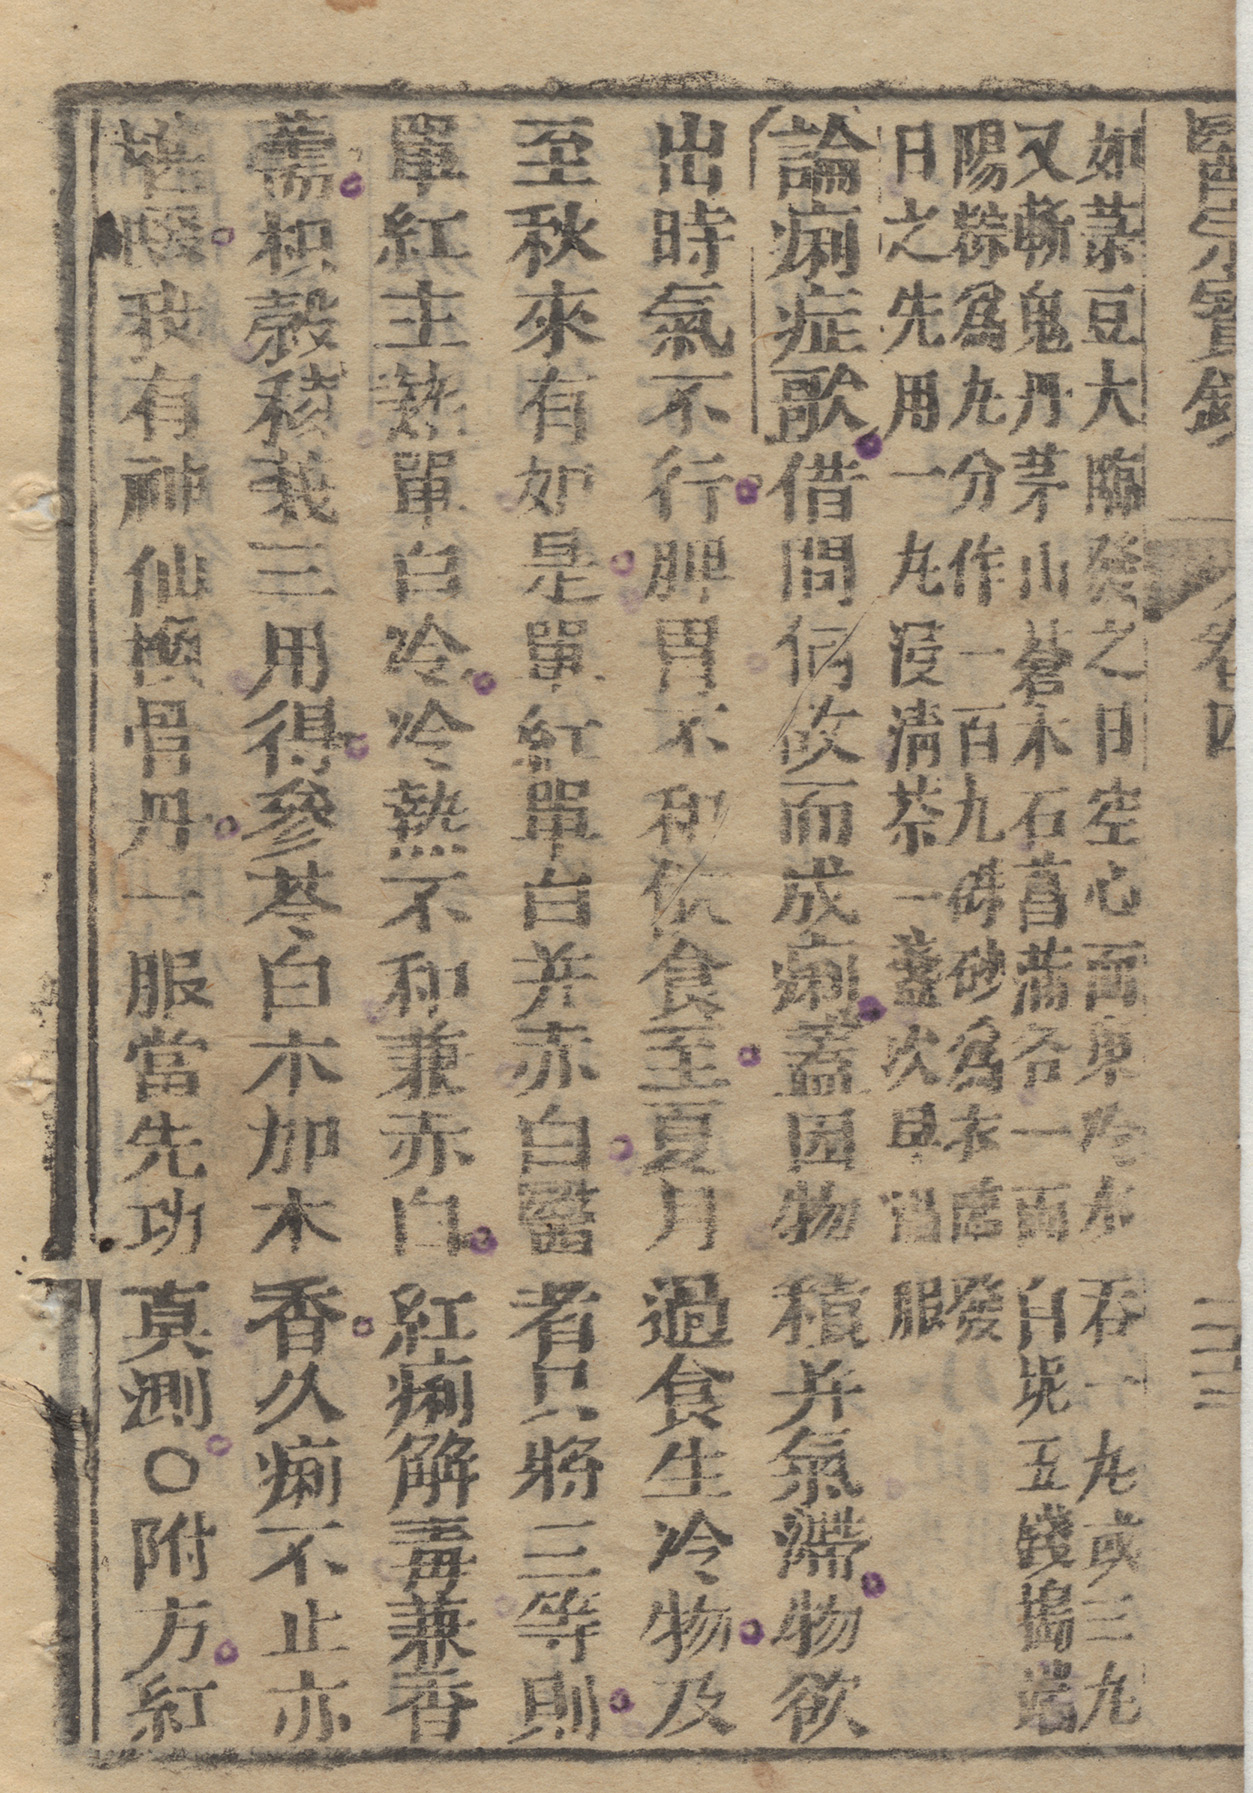 醫宗寶鏡 卷四 二十三
如菉豆大臨發之日空心面東冷水吞一九或三九
又斬鬼丹茅山蒼木石菖蒲各一兩白坭五錢搗端
陽粽為九分作一百九硃砂為衣臨發
日之先用一九浸清茶一盞次早溫服
論痢症歌借問何故而成痢蓋因物積并氣滯物欲
出時氣不行脾胃不和飲食至夏月過食生冷物及
至秋來有如是單紅單白并赤白醫者只將三等則
單紅主熱單白冷冷熱不和兼赤白紅痢解毒兼香
薷枳殼積莪三用得參苓白木加木香久痢不止亦
我有神仙換骨丹一服當先功真測〇附方紅